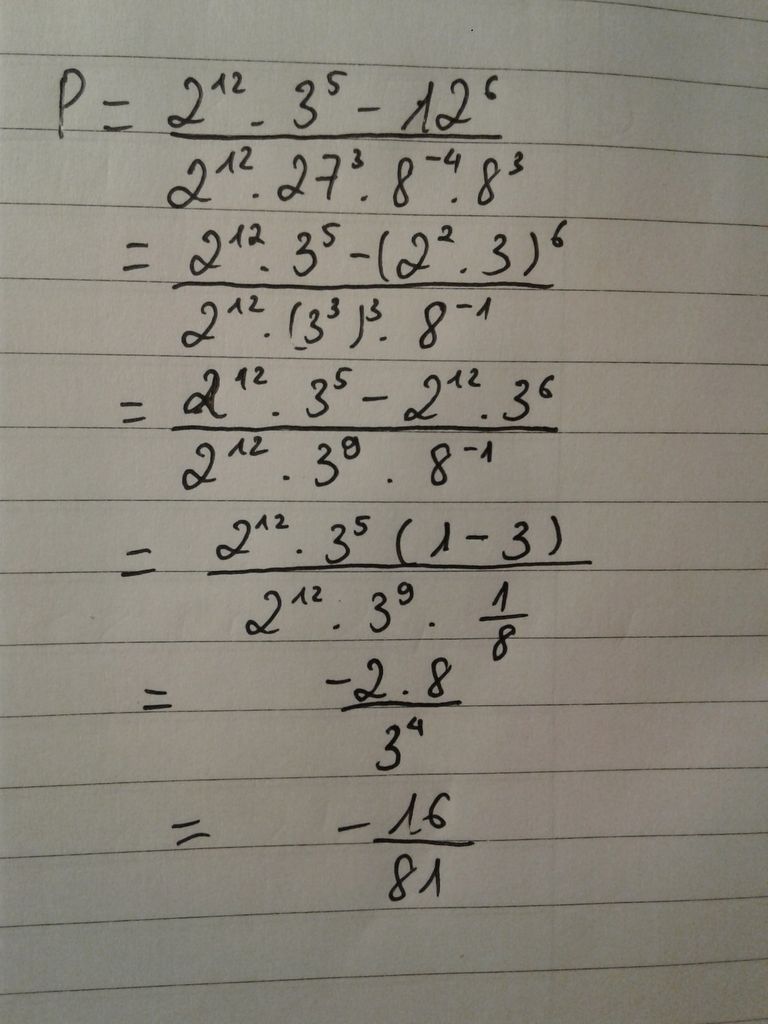 P = \frac{2^{12} \cdot 3^5 - 12^6}{2^{12} \cdot 27^3 \cdot 8^{-4} \cdot 8^3}
= \frac{2^{12} \cdot 3^5 - (2^2 \cdot 3)^6}{2^{12} \cdot (3^3)^3 \cdot 8^{-1}}
= \frac{2^{12} \cdot 3^5 - 2^{12} \cdot 3^6}{2^{12} \cdot 3^9 \cdot 8^{-1}}
= \frac{2^{12} \cdot 3^5 (1 - 3)}{2^{12} \cdot 3^9 \cdot \frac{1}{8}}
= \frac{-2 \cdot 8}{3^4}
= -\frac{16}{81}